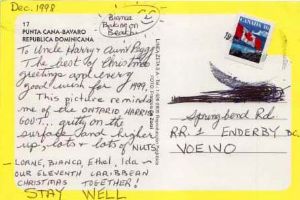 Dec. 1998
Bianca
Baking on
Beach!
17
PUNTA CANA-BAVARO
REPUBLICA DOMINICANA
To Uncle Harry & Aunt Peggy
The best of Christmas
greetings and every
good wish for 1999,
This picture reminded
me of the ONTARIO HARRIS
GOVT... gritty on the
surface (and higher
up) lots & lots of NUTS
~ LORNE, BIANCA, Ethel, Ida ~
OUR ELEVENTH CARIBBEAN
CHRISTMAS TOGETHER!
STAY WELL
CANADA
Springbend Rd.
RR. 1 ENDERBY BC.
V0E 1V0